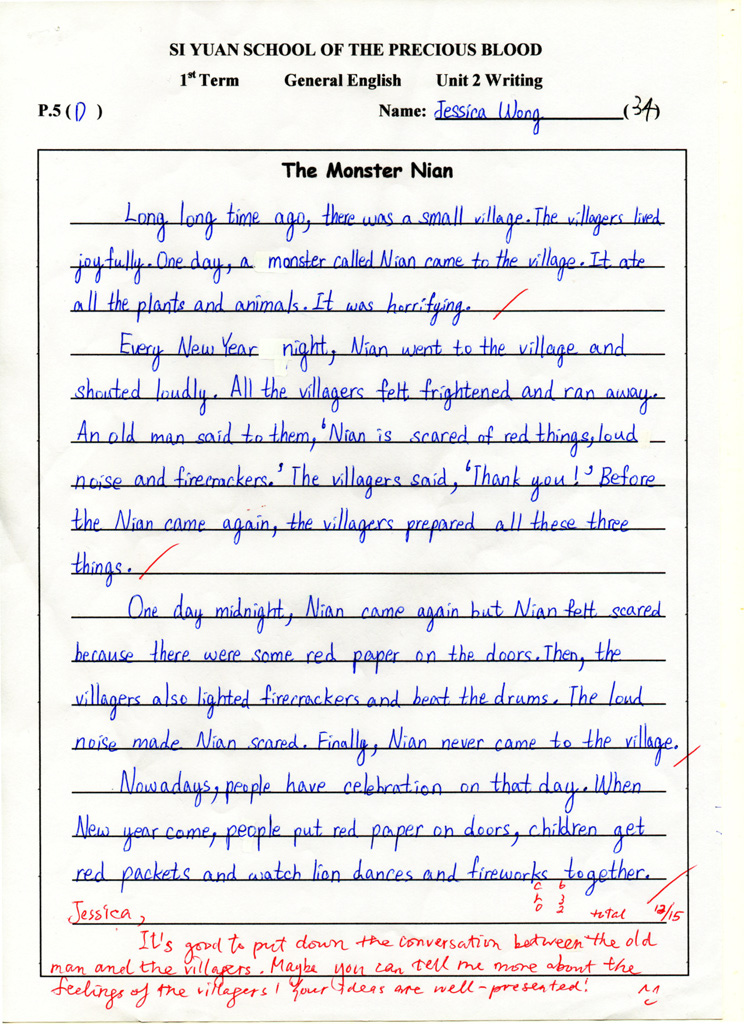 SI YUAN SCHOOL OF THE PRECIOUS BLOOD
1st Term General English Unit 2 Writing
P.5 (D) Name: Jessica Wong (34)
The Monster Nian
Long long time ago, there was a small village. The villagers lived
joyfully. One day, a monster called Nian came to the village. It ate
all the plants and animals. It was horrifying.
Every New Year night, Nian went to the village and
shouted loudly. All the villagers felt frightened and ran away.
An old man said to them, 'Nian is scared of red things, loud
noise and firecrackers.' The villagers said, 'Thank you!' Before
the Nian came again, the villagers prepared all these three
things.
One day midnight, Nian came again but Nian felt scared
because there were some red paper on the doors. Then, the
villagers also lighted firecrackers and beat the drums. The loud
noise made Nian scared. Finally, Nian never came to the village.
Nowadays, people have celebration on that day. When
New year come, people put red paper on doors, children get
red packets and watch lion dances and fireworks together.
C 6
L 3
O 2
Jessica, total 12/15
It's good to put down the conversation between the old
man and the villagers. Maybe you can tell me more about the
feelings of the villagers! Your ideas are well-presented!